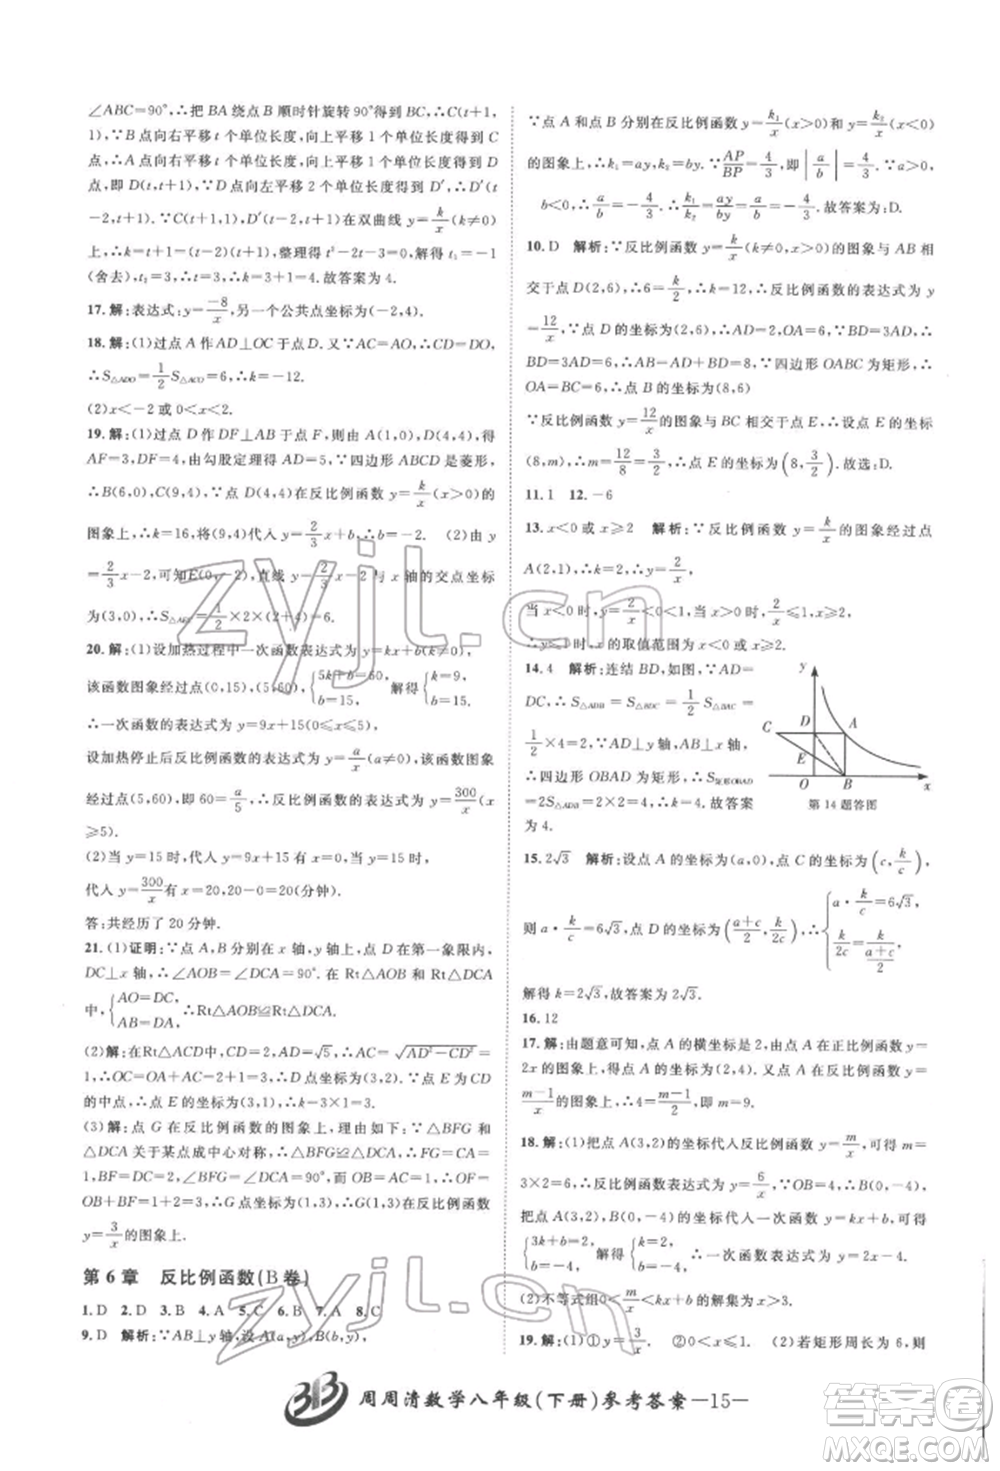 ∠ABC=90°,∴把 BA 绕点 B 顺时针旋转 90°得到 BC,∴C(t+1,
1).∵B 点向右平移 t 个单位长度,向上平移 1 个单位长度得到 C
点,∴A 点向右平移 t 个单位长度,向上平移 1 个单位长度得到 D
点,即 D(t,t+1),∵D 点向左平移 2 个单位长度得到 D′,∴D′(t
-2,t+1).∵C(t+1,1),D′(t-2,t+1)在双曲线 y=k/x(k≠0)
上,∴k=t+1=(t-2)(t+1),整理得 t²-2t-3=0,解得 t₁=-1
(舍去),t₂=3,∴t=3,∴k=3+1=4.故答案为 4.
17.解:表达式:y=-8/x,另一个公共点坐标为(-2,4).
18.解:(1)过点 A 作 AD⊥OC 于点 D.又∵AC=AO,∴CD=DO,
∴S△ADO=1/2S△ACO=6,∴k=-12.
(2)x<-2 或 0<x<2.
19.解:(1)过点 D 作 DF⊥AB 于点 F,则由 A(1,0),D(4,4),得
AF=3,DF=4,由勾股定理得 AD=5.∵四边形 ABCD 是菱形,
∴B(6,0),C(9,4).∵点 D(4,4)在反比例函数 y=k/x(x>0)的
图象上,∴k=16,将(9,4)代入 y=2/3x+b,∴b=-2. (2)由 y=
2/3x-2,可知E(0,-2),直线 y=2/3x-2 与 x 轴的交点坐标
为(3,0),∴S△AEC=1/2×2×(2+4)=6.
20.解:(1)设加热过程中一次函数表达式为 y=kx+b(k≠0),∵
该函数图象经过点(0,15),(5,60),∴{5k+b=60, b=15, 解得{k=9, b=15,
∴一次函数的表达式为 y=9x+15(0≤x≤5).
设加热停止后反比例函数的表达式为 y=a/x(a≠0),该函数图象
经过点(5,60),∴60=a/5,∴a=300,∴反比例函数表达式为 y=300/x(x
≥5).
(2)当 y=15 时,代入 y=9x+15 有 x=0,当 y=15 时,
代入 y=300/x 有 x=20,20-0=20(分钟).
答:共经历了 20 分钟.
21.(1)证明:∵点 A,B 分别在 x 轴,y 轴上,点 D 在第一象限内,
DC⊥x 轴,∴∠AOB=∠DCA=90°.在 Rt△AOB 和 Rt△DCA
中,{AO=DC, AB=DA, ∴Rt△AOB≌Rt△DCA(HL).
(2)解:在Rt△ACD中,∵CD=2,AD=√5,∴AC=√(AD²-CD²)=
1,∴OC=OA+AC=3,∴D点坐标为(3,2).∵点 E 为 CD 的
中点,∴点 E 的坐标为(3,1),∴k=3×1=3.
(3)解:点 G 在反比例函数的图象上,理由如下:∵△BFG 和
△DCA 关于某点成中心对称,∴△BFG≌△DCA,∴FG=CA=
1,BF=DC=2,∠BFG=∠DCA=90°.∵OB=AC=1,∴OF=
OB+BF=1+2=3,∴G 点坐标为(1,3),∴点 G 在反比例函数
y=3/x的图象上.
第 6 章 反比例函数(B 卷)
1.D 2.D 3.B 4.A 5.C 6.B 7.A 8.C
9.D 解析:∵AB⊥y 轴,设A(a,y),B(b,y),
∵点 A 和点 B 分别在反比例函数 y=k₁/x(x>0)和 y=k₂/x(x<0)
的图象上,∴k₁=ay,k₂=by.∵AP/BP=4/3,即|a/b|=4/3,∵a>0,
b<0,∴a/b=-4/3,∴k₁/k₂=ay/by=a/b=-4/3.故答案为:D.
10.D 解析:∵反比例函数 y=k/x(k≠0,x>0)的图象与 AB 相
交于点 D(2,6),∴6=k/2,∴k=12,∴反比例函数的表达式为 y=
12/x.∵D(2,6),∴点 A 的坐标为(0,6),∴AD=2,OA=6,∵
BD=3AD,∴BD=6,∴AB=8.∵四边形 OABC 为矩形,∴
OA=BC=6,∴点 B 的坐标为(8,6)
∵反比例函数 y=12/x的图象与 BC 相交于点 E,∴设点 E
(8,m),∴m=12/8=3/2,∴点 E 的坐标为(8,3/2).故选:D.
11.1 12.-6
13.x<0 或 x≥2 解析:∵反比例函数 y=k/x的图象经过点
A(2,1),∴k=2×1=2,∴y=2/x,
当 x<0 时,y=2/x<0;当 x>0,y≤1 时,2/x≤1,∴x≥2,
∴y≤1 时,x 的取值范围为 x<0 或 x≥2.
14.4 解析:连结 BD,如图,∵AD=
DC,∴S△ADB=S△BDC=1/2S△BAC=
1/2×4=2.∵AD⊥y 轴,AB⊥x 轴,
∴四边形 OBAD 为矩形,∴S矩形OBAD
=2S△ADB=2×2=4,∴k=4.故答案
为 4.
y
C D A
E
O B x
第 14 题答图
15.2√3 解析:设点 A 的坐标为(a,0),点 C 的坐标为(c,k/c),
则 a·k/c=6√3,点 D 的坐标为((a+c)/2,k/2c),∴{a·k/c=6√3, k/2c=k/((a+c)/2),
解得 k=2√3,故答案为 2√3.
16.12
17.解:由题意可知,点 A 的横坐标是 2,由点 A 在正比例函数 y=
2x 的图象上,得点 A 的坐标为(2,4).又∵点 A 在反比例函数 y=
(m-1)/x的图象上,∴4=(m-1)/2,即 m=9.
18.解:(1)把点 A(3,2)的坐标代人反比例函数 y=m/x,可得 m=
3×2=6,∴反比例函数的表达式为 y=6/x,∵OB=4,∴B(0,-4),
把点 A(3,2),B(0,-4)的坐标代人一次函数 y=kx+b,可得
{3k+b=2, b=-4, 解得{k=2, b=-4, ∴一次函数的表达式为 y=2x-4;
(2)不等式组0<m/x<kx+b 的解集为 x>3.
19.解:(1)①y=3/x. ②0<x≤1. (2)若矩形周长为 6,则
周周清数学八年级(下册)参考答案 —15—
zyjl.cn
zyjl.cn
答案圈
MXQE.COM